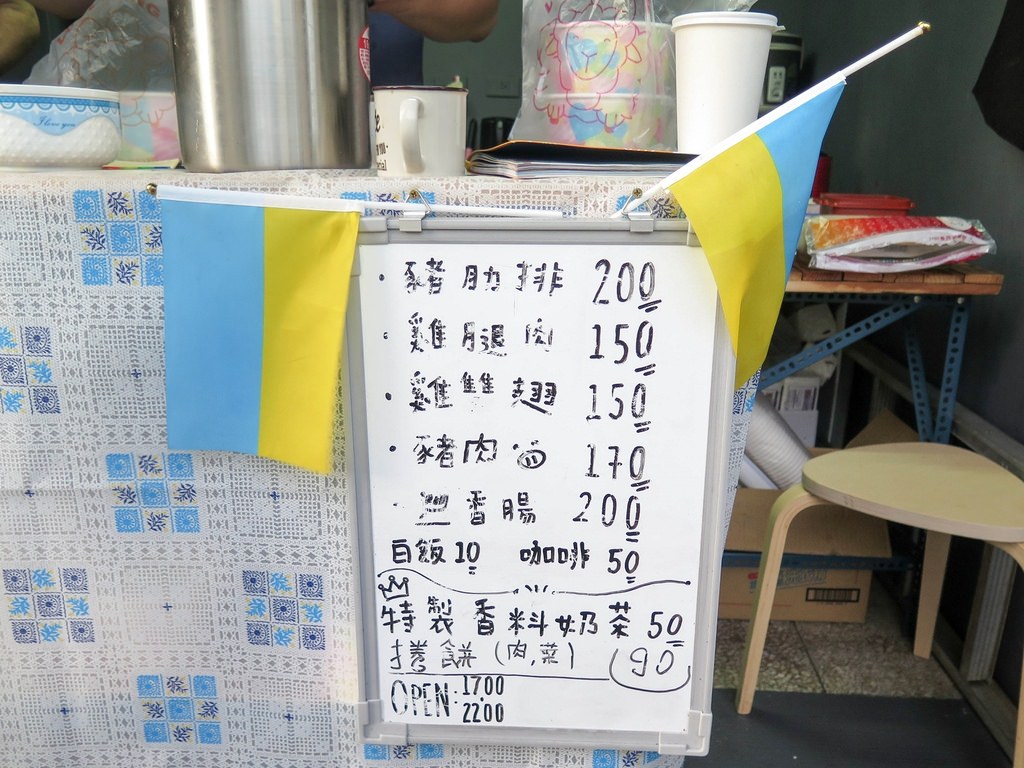 I love you
・豬肋排 200
・雞腿肉 150
・雞雙翅 150
・豬肉 170
香腸 200
白飯 10 咖啡 50
特製香料奶茶 50
捲餅 (肉,菜) 90
OPEN: 17:00
22:00